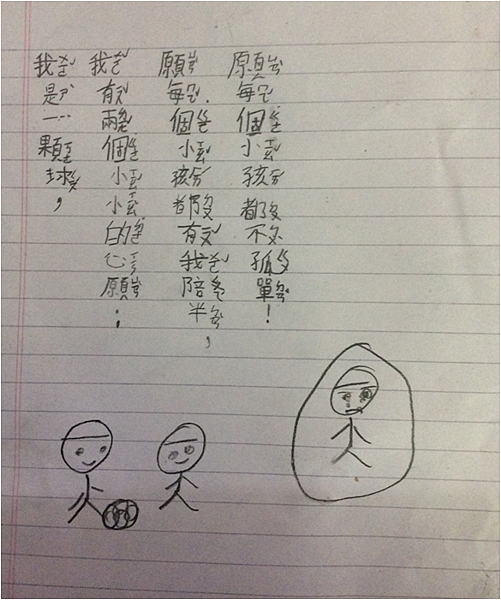 我是一顆球，
我有兩個小小的心願；
願每個小孩都有我陪半，
願每個小孩都不孤單！